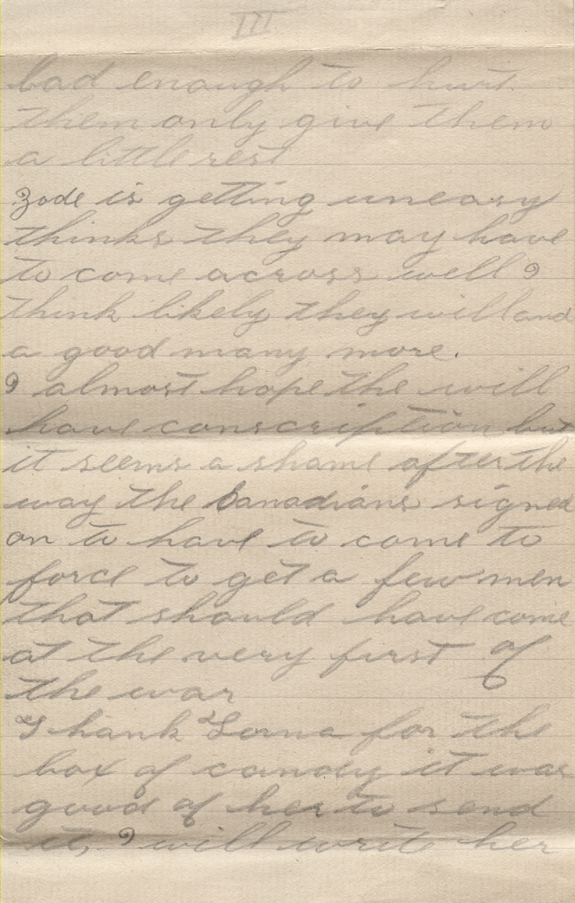 III
bad enough to hurt
them only give them
a little rest
Zode is getting uneasy
thinks they may have
to come across well I
think likely they will and
a good many more.
I almost hope the will
have conscription but
it seems a shame after the
way the Canadians signed
on to have to come to
force to get a few men
that should have come
at the very first of
the war
Thank Lorna for the
box of candy it was
good of her to send
it, I will write her